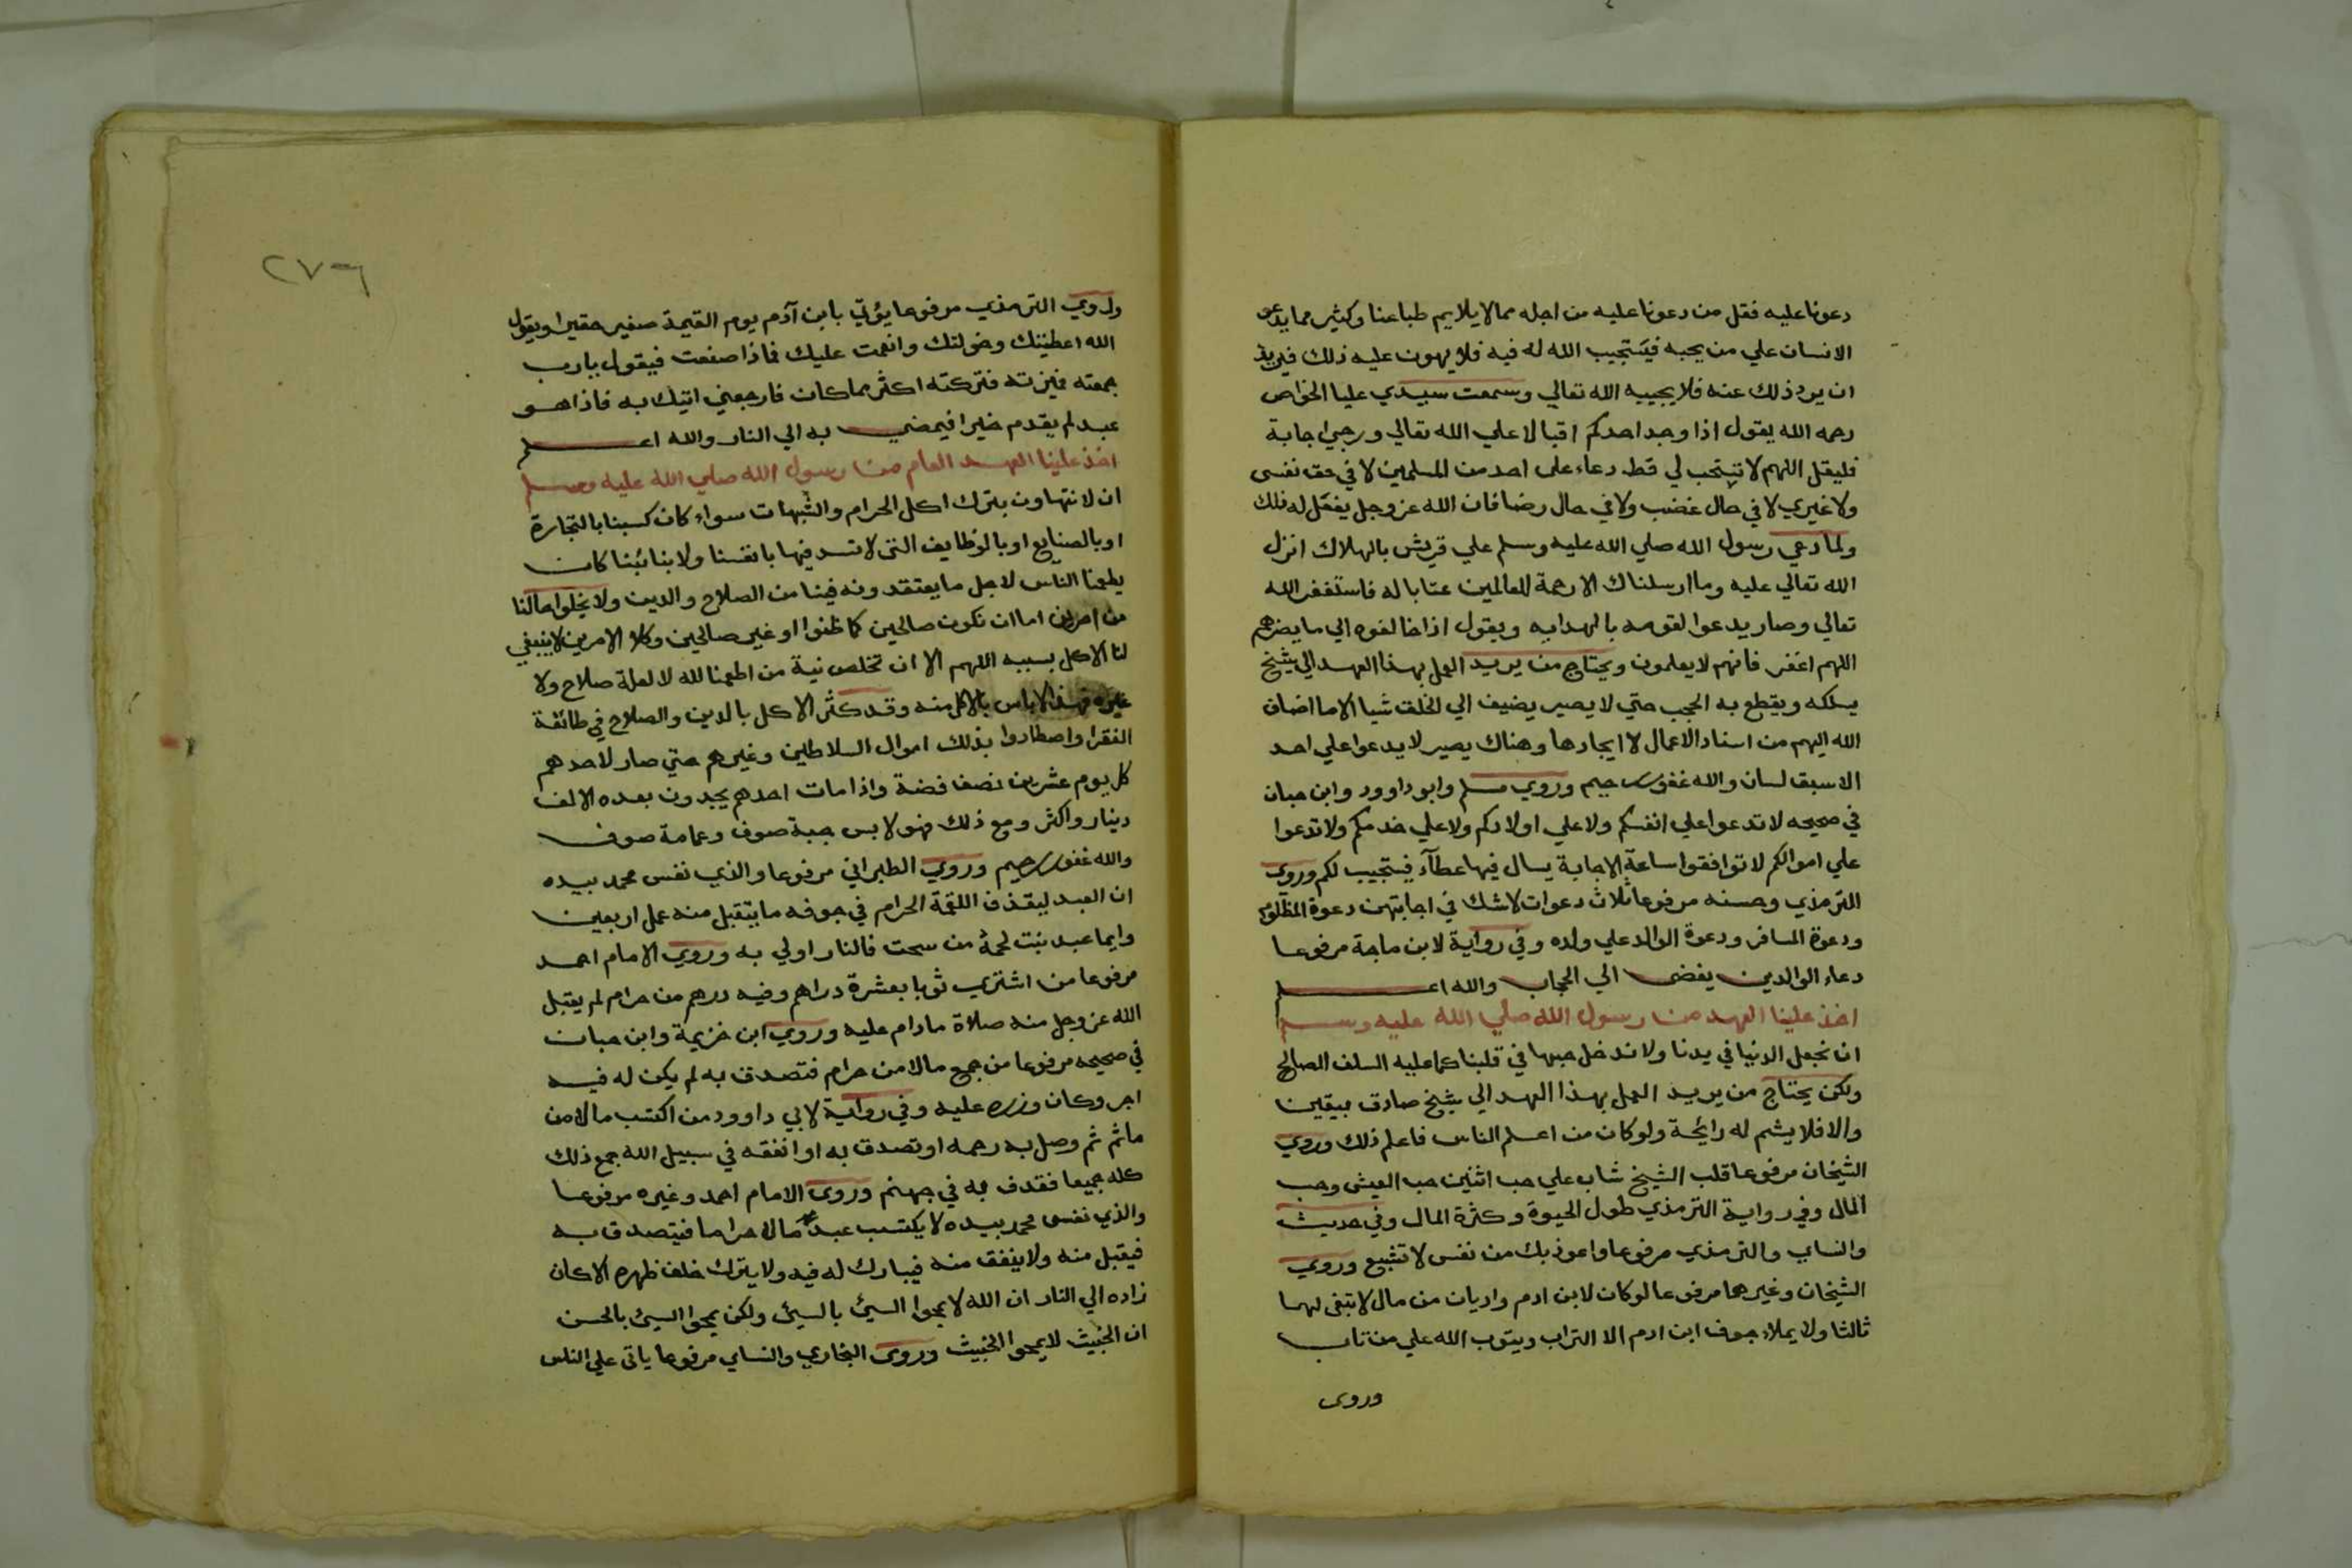 دعونا عليه فقل من دعونا عليه من اجله مما لا يلايم طباعنا وكثير مما يدعو
الانسان علي من يحبه فيستجيب الله له فيه فلا يهون عليه ذلك فيريد
ان يرد ذلك عنه فلا يجيبه الله تعالي وسمعت سيدي عليا الخواص
رحمه الله يقول اذا وجد احدكم اقبالا علي الله تعالي ورجي اجابة
فليقل اللهم لا تستجب لي قط دعاء على احد من المسلمين لا في حق نفسى
ولا غيري لا في حال غضب ولا في حال رضا فان الله عز وجل يفعل له ذلك
ولما دعي رسول الله صلي الله عليه وسلم علي قريش بالهلاك انزل
الله تعالي عليه وما ارسلناك الا رحمة للعالمين عتابا له فاستغفر الله
تعالي وصار يدعوا لقومه بالهدايه ويقول اذا خالفوه الي ما يضرهم
اللهم اغفر فانهم لا يعلمون ويحتاج من يريد العمل بهذا العهد الي شيخ
يسلكه ويقطع به الحجب حتي لا يصير يضيف الي الخلق شيا الا ما اضاف
الله اليهم من اسناد الاعمال لا ايجادها وهناك يصير لا يدعوا علي احد
الا سبق لسان والله غفور رحيم وروي مسلم وابو داوود وابن حبان
في صحيحه لا تدعوا علي انفسكم ولا علي اولادكم ولا علي خدمكم ولا تدعوا
علي اموالكم لا توافقوا ساعة الاجابة يسال فيها عطآء فيستجيب لكم وروى
الترمذي وحسنه مرفوعا ثلاث دعوات لا شك في اجابتهن دعوة المظلوم
ودعوة المسافر ودعوة الوالد علي ولده وفي رواية لابن ماجة مرفوعا
دعاء الوالدين يفضى الي الحجاب والله اعلم
اخذ علينا العهد من رسول الله صلي الله عليه وسلم
ان نجعل الدنيا في يدنا ولا ندخل حبها في قلبنا كما عليه السلف الصالح
ولكن يحتاج من يريد العمل بهذا العهد الي شيخ صادق بيقين
والا فلا يشم له رايحة ولو كان من اعلم الناس فاعلم ذلك وروي
الشيخان مرفوعا قلب الشيخ شاب علي حب اثنين حب العيش وحب
المال وفي رواية الترمذي طول الحيوة وكثرة المال وفي حديث
والنساي والترمذي مرفوعا واعوذ بك من نفس لا تشبع وروي
الشيخان وغيرهما مرفوعا لو كان لابن ادم واديان من مال لابتغى لهما
ثالثا ولا يملاء جوف ابن ادم الا التراب ويتوب الله علي من تاب
وروى
٢٧٦
وروي الترمذي مرفوعا يؤتي بابن آدم يوم القيمة صغير حقيرا ويقول
الله اعطيتك وخولتك وانعمت عليك فماذا صنعت فيقول يا رب
جمعته فنزته فتركته اكثر مما كان فارجعني اتيك به فاذا هو
عبد لم يقدم خيرا فيمضي به الي النار والله اعلم
اخذ علينا العهد العام من رسول الله صلي الله عليه وسلم
ان لا نتهاون بترك اكل الحرام والشبهات سواء كان كسبنا بالتجارة
او بالصنايع او بالوظايف التى لا نسد فيها بانفسنا ولا بنائبنا كان
يطعمنا الناس لاجل ما يعتقدونه فينا من الصلاح والدين ولا يخلوا حالنا
من امرين اما ان نكون صالحين كما ظنوا او غير صالحين وكلا الامرين لا ينبغي
لنا الاكل بسببه اللهم الا ان تخلص نية من اطعمنا لله لا لعلة صلاح ولا
غيره فهذا لا باس بالاكل منه وقد كثر الاكل بالدين والصلاح في طائفة
الفقرا واصطادوا بذلك اموال السلاطين وغيرهم حتي صار لاحدهم
كل يوم عشرين نصفا فضة واذا مات احدهم يجدون بعده الالف
دينار واكثر ومع ذلك فهو لابس جبة صوف وعمامة صوف
والله غفور رحيم وروي الطبراني مرفوعا والذي نفس محمد بيده
ان العبد ليقذف اللقمة الحرام في جوفه ما يتقبل منه عمل اربعين
وايما عبد نبت لحمه من سحت فالنار اولي به وروي الامام احمد
مرفوعا من اشتري ثوبا بعشرة دراهم وفيه درهم من حرام لم يقبل
الله عز وجل منه صلاة ما دام عليه وروي ابن خزيمة وابن حبان
في صحيحه مرفوعا من جمع مالا من حرام فتصدق به لم يكن له فيه
اجر وكان وزره عليه وفي رواية لابي داوود من اكتسب مالا من
ماثم ثم وصل به رحمه او تصدق به او انفقه في سبيل الله جمع ذلك
كله جميعا فقذف به في جهنم وروى الامام احمد وغيره مرفوعا
والذي نفس محمد بيده لا يكتسب عبد مالا حراما فيتصدق به
فيقبل منه ولا ينفق منه فيبارك له فيه ولا يترك خلف ظهره الا كان
زاده الي النار ان الله لا يمحوا السيئ بالسيئ ولكن يمحوا السيئ بالحسن
ان الخبيث لا يمحوا الخبيث وروى البخاري والنساي مرفوعا ياتى علي الناس